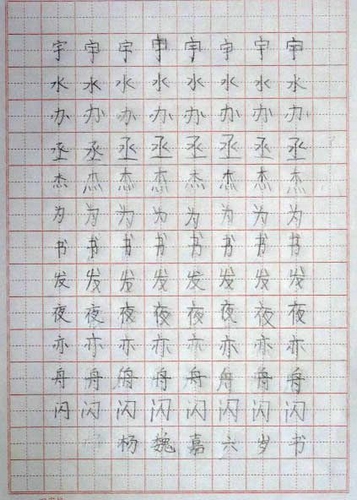 宇宇宇宇宇宇宇宇
水水水水水水水水
办办办办办办办办
丞丞丞丞丞丞丞丞
杰杰杰杰杰杰杰杰
为为为为为为为为
书书书书书书书书
发发发发发发发发
夜夜夜夜夜夜夜夜
亦亦亦亦亦亦亦亦
舟舟舟舟舟舟舟舟
闪闪闪闪闪闪闪闪
杨魏嘉六岁书